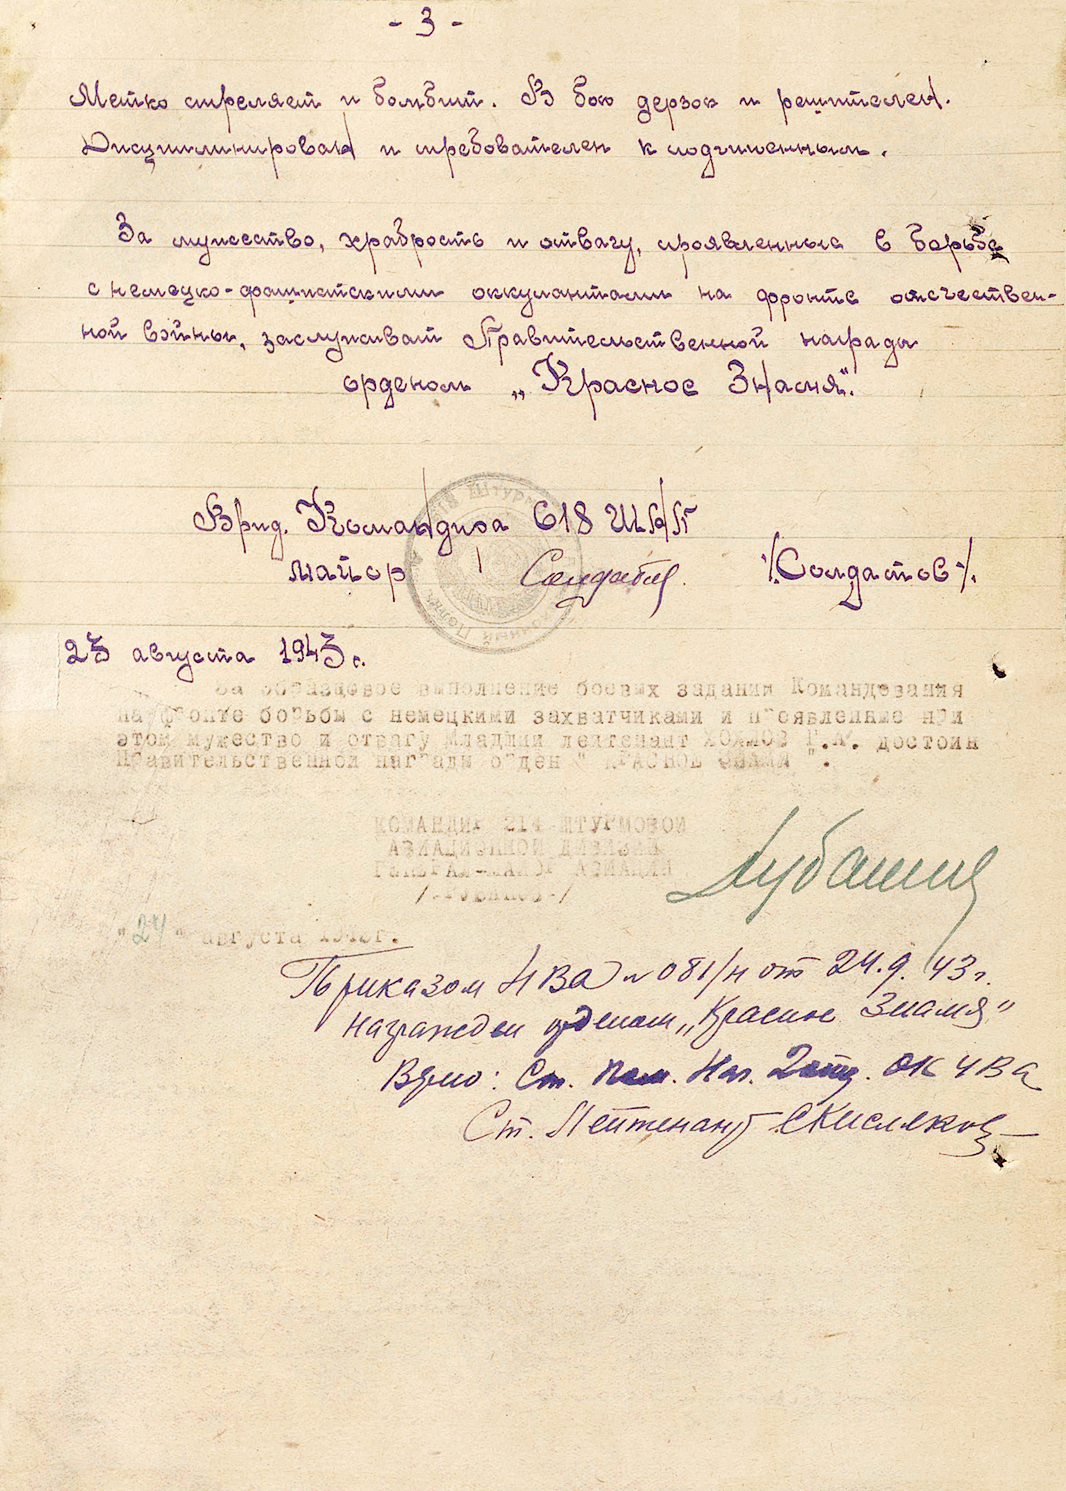 - 3 -
Метко стреляет и бомбит. В бою дерзок и решителен.
Дисциплинирован и требователен к подчиненным.
За мужество, храбрость и отвагу, проявленные в борьбе
с немецко-фашистскими оккупантами на фронте отечествен-
ной войны, заслуживает Правительственной награды
орденом „Красное Знамя".
Врид. Командира 618 ШАП
майор Солдатов /Солдатов/.
23 августа 1943 г.
За образцовое выполнение боевых задании Командования
на фронте борьбы с немецкими захватчиками и проявленные при
этом мужество и отвагу Младший лейтенант ХОЛМОВ Г.А. достоин
Правительственной награды орден " КРАСНОЕ ЗНАМЯ ".
КОМАНДИР 214 ШТУРМОВОЙ
АВИАЦИОННОЙ ДИВИЗИИ
ГЕНЕРАЛ-МАЙОР АВИАЦИИ
/-РУБАНОВ-/
" 24 " августа 1943г.
Приказом 4 ВА № 081/н от 24.9.43 г.
награжден орденом „Красное Знамя"
Врио: Ст. пом. Нач. 2 отд. ОК 4 ВА
Ст. Лейтенант Кисляков